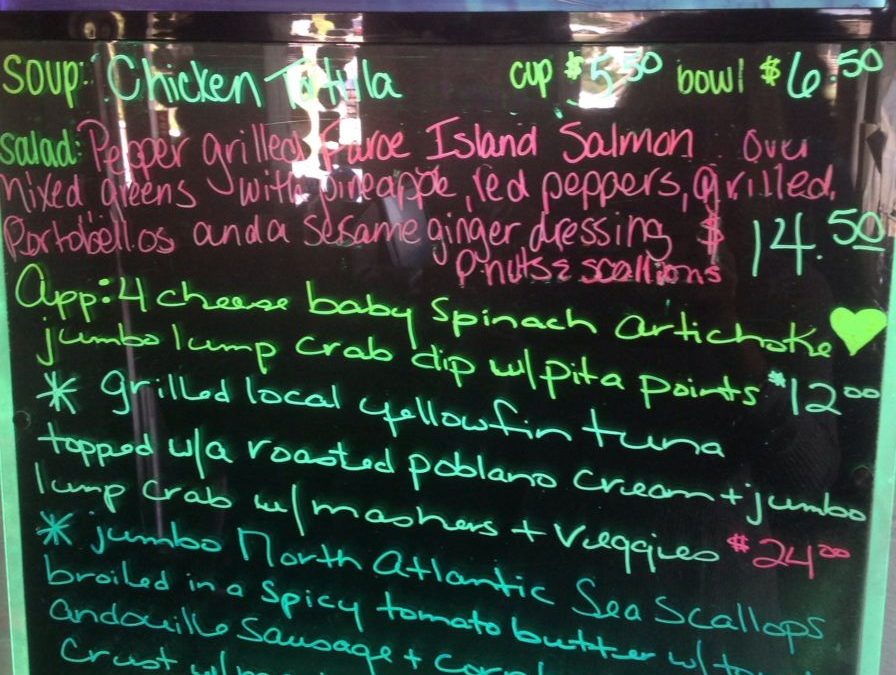 Soup: Chicken Tortula cup $5.50 bowl $6.50
Salad: Pepper grilled Faroe Island Salmon Over
Mixed greens with pineapple, red peppers, grilled
Portobellos and a sesame ginger dressing $14.50
P.nuts & scallions
App: 4 cheese baby Spinach artichoke
jumbo lump crab dip w/pita points $12.00
* grilled local yellowfin tuna
topped w/a roasted poblano cream + jumbo
lump crab w/mashers + veggies $24.00
* jumbo North Atlantic Sea Scallops
broiled in a spicy tomato butter w/
andouille sausage + corn
Crust w/